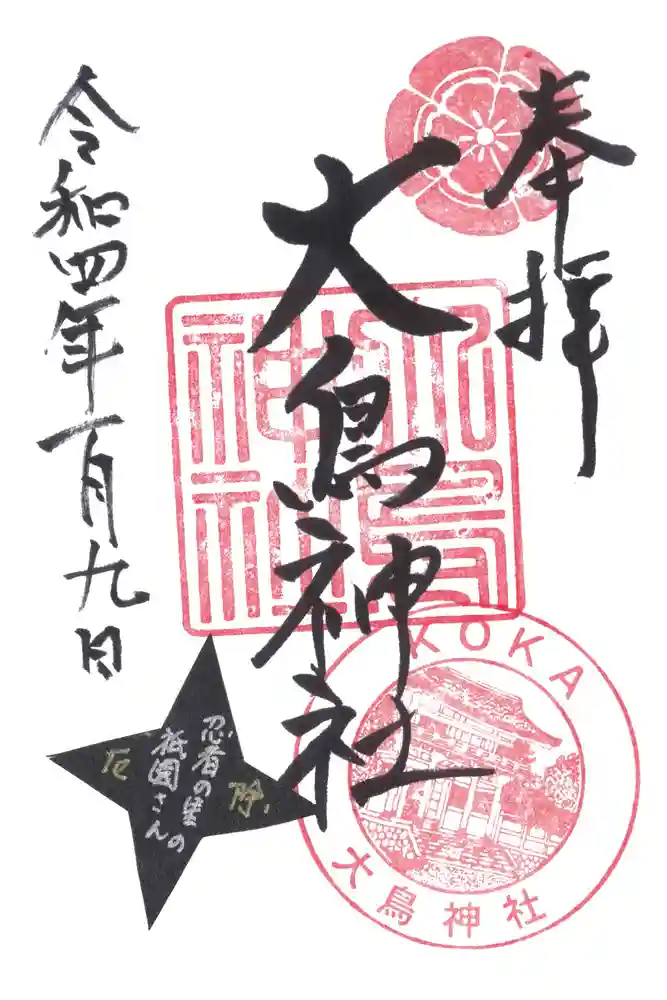 奉拝
大鳥神社
令和四年一月九日
大鳥神社
KOKA
大鳥神社
忍者の里の
祇園さん
厄除